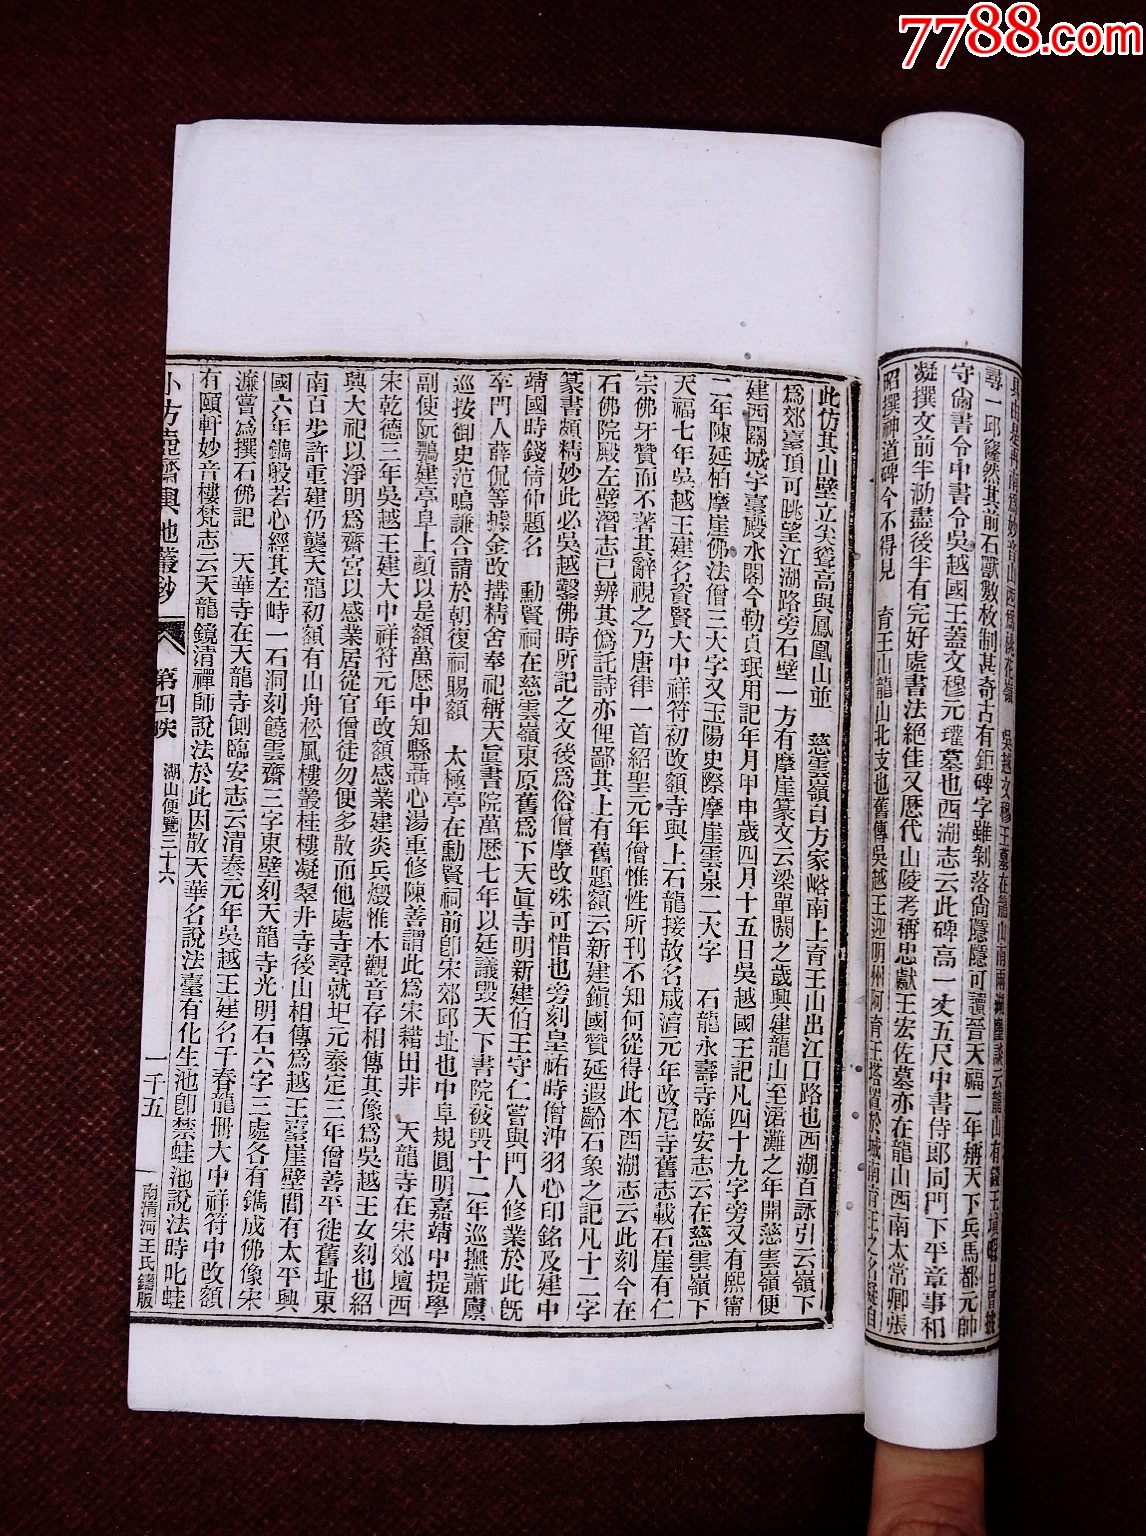 7788.com
尋一邱隆然其前石獸數枚制甚奇古有鉅碑字雖剝落尙隱隱可讀晉天福二年稱天下兵馬都元帥
守尙書令中書令吳越國王蓋文穆元瓘墓也西湖志云此碑高一丈五尺中書侍郎同門下平章事和
凝撰文前半泐盡後半有完好處書法絕佳又歷代山陵考稱忠獻王宏佐墓亦在龍山西南太常卿張
昭撰神道碑今不得見　育王山龍山北支也舊傳吳越王迎明州阿育王塔置於城南育王之名疑自
此仿其山壁立尖聳高與鳳凰山並　慈雲嶺自方家峪南上育王山出江口路也西湖百詠引云嶺下
爲郊臺頂可眺望江湖路旁石壁一方有摩崖篆文云梁單閼之歲興建龍山至涒灘之年開慈雲嶺便
建西關城宇臺殿水閣今勒貞珉用記年月甲申歲四月十五日吳越國王記凡四十九字旁又有熙甯
二年陳延栢摩崖佛法僧三大字又玉陽史際摩崖雲泉二大字　石龍永壽寺臨安志云在慈雲嶺下
天福七年吳越王建名資賢大中祥符初改額寺與上石龍接故名咸淳元年改尼寺舊志載石崖有仁
宗佛牙贊而不著其辭視之乃唐律一首紹聖元年僧惟性所刊不知何從得此本西湖志云此刻今在
石佛院殿左壁潛志已辨其僞託詩亦俚鄙其上有舊題額云新建鎭國贊延遐齡石象之記凡十二字
篆書頗精妙此必吳越鑿佛時所記之文後爲俗僧摩改殊可惜也旁刻皇祐時僧沖羽心印銘及建中
靖國時錢倚仲題名　勳賢祠在慈雲嶺東原舊爲下天眞寺明新建伯王守仁嘗與門人修業於此旣
卒門人薛侃等壉金改搆精舍奉祀稱天眞書院萬歷七年以廷議毀天下書院被毀十二年巡撫蕭廩
巡按御史范鳴謙合請於朝復祠賜額　太極亭在勳賢祠前卽宋郊邱址也中阜規圓明嘉靖中提學
副使阮鶚建亭阜上顏以是額萬歷中知縣聶心湯重修陳善謂此爲宋藉田非　天龍寺在宋郊壇西
宋乾德三年吳越王建大中祥符元年改額感業建炎兵燬惟木觀音存相傳其像爲吳越王女刻也紹
興大祀以淨明爲齋宮以感業居從官僧徒勿便多散而他處寺尋就圯元泰定三年僧善平徙舊址東
南百步許重建仍襲天龍初額有山舟松風樓叢桂樓凝翠井寺後山相傳爲越王臺崖壁間有太平興
國六年鐫般若心經其左峙一石洞刻饒雲齋三字東壁刻天龍寺光明石六字三處各有鐫成佛像宋
濂嘗爲撰石佛記　天華寺在天龍寺側臨安志云清泰元年吳越王建名千春龍冊大中祥符中改額
有頤軒妙音樓梵志云天龍鏡清禪師說法於此因散天華名說法臺有化生池卽禁蛙池說法時叱蛙
小方壺齋輿地叢鈔　第四帙　湖山便覽三十六　一千五　南清河王氏鑄版